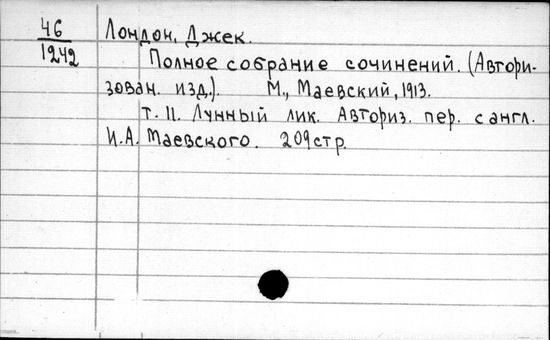 46
1242
Лондон, Джек.
Полное собрание сочинений. (Автори-
зован. изд.). М., Маевский, 1913.
т. 11. Лунный лик. Авториз. пер. с англ.
И.А. Маевского. 209 стр.